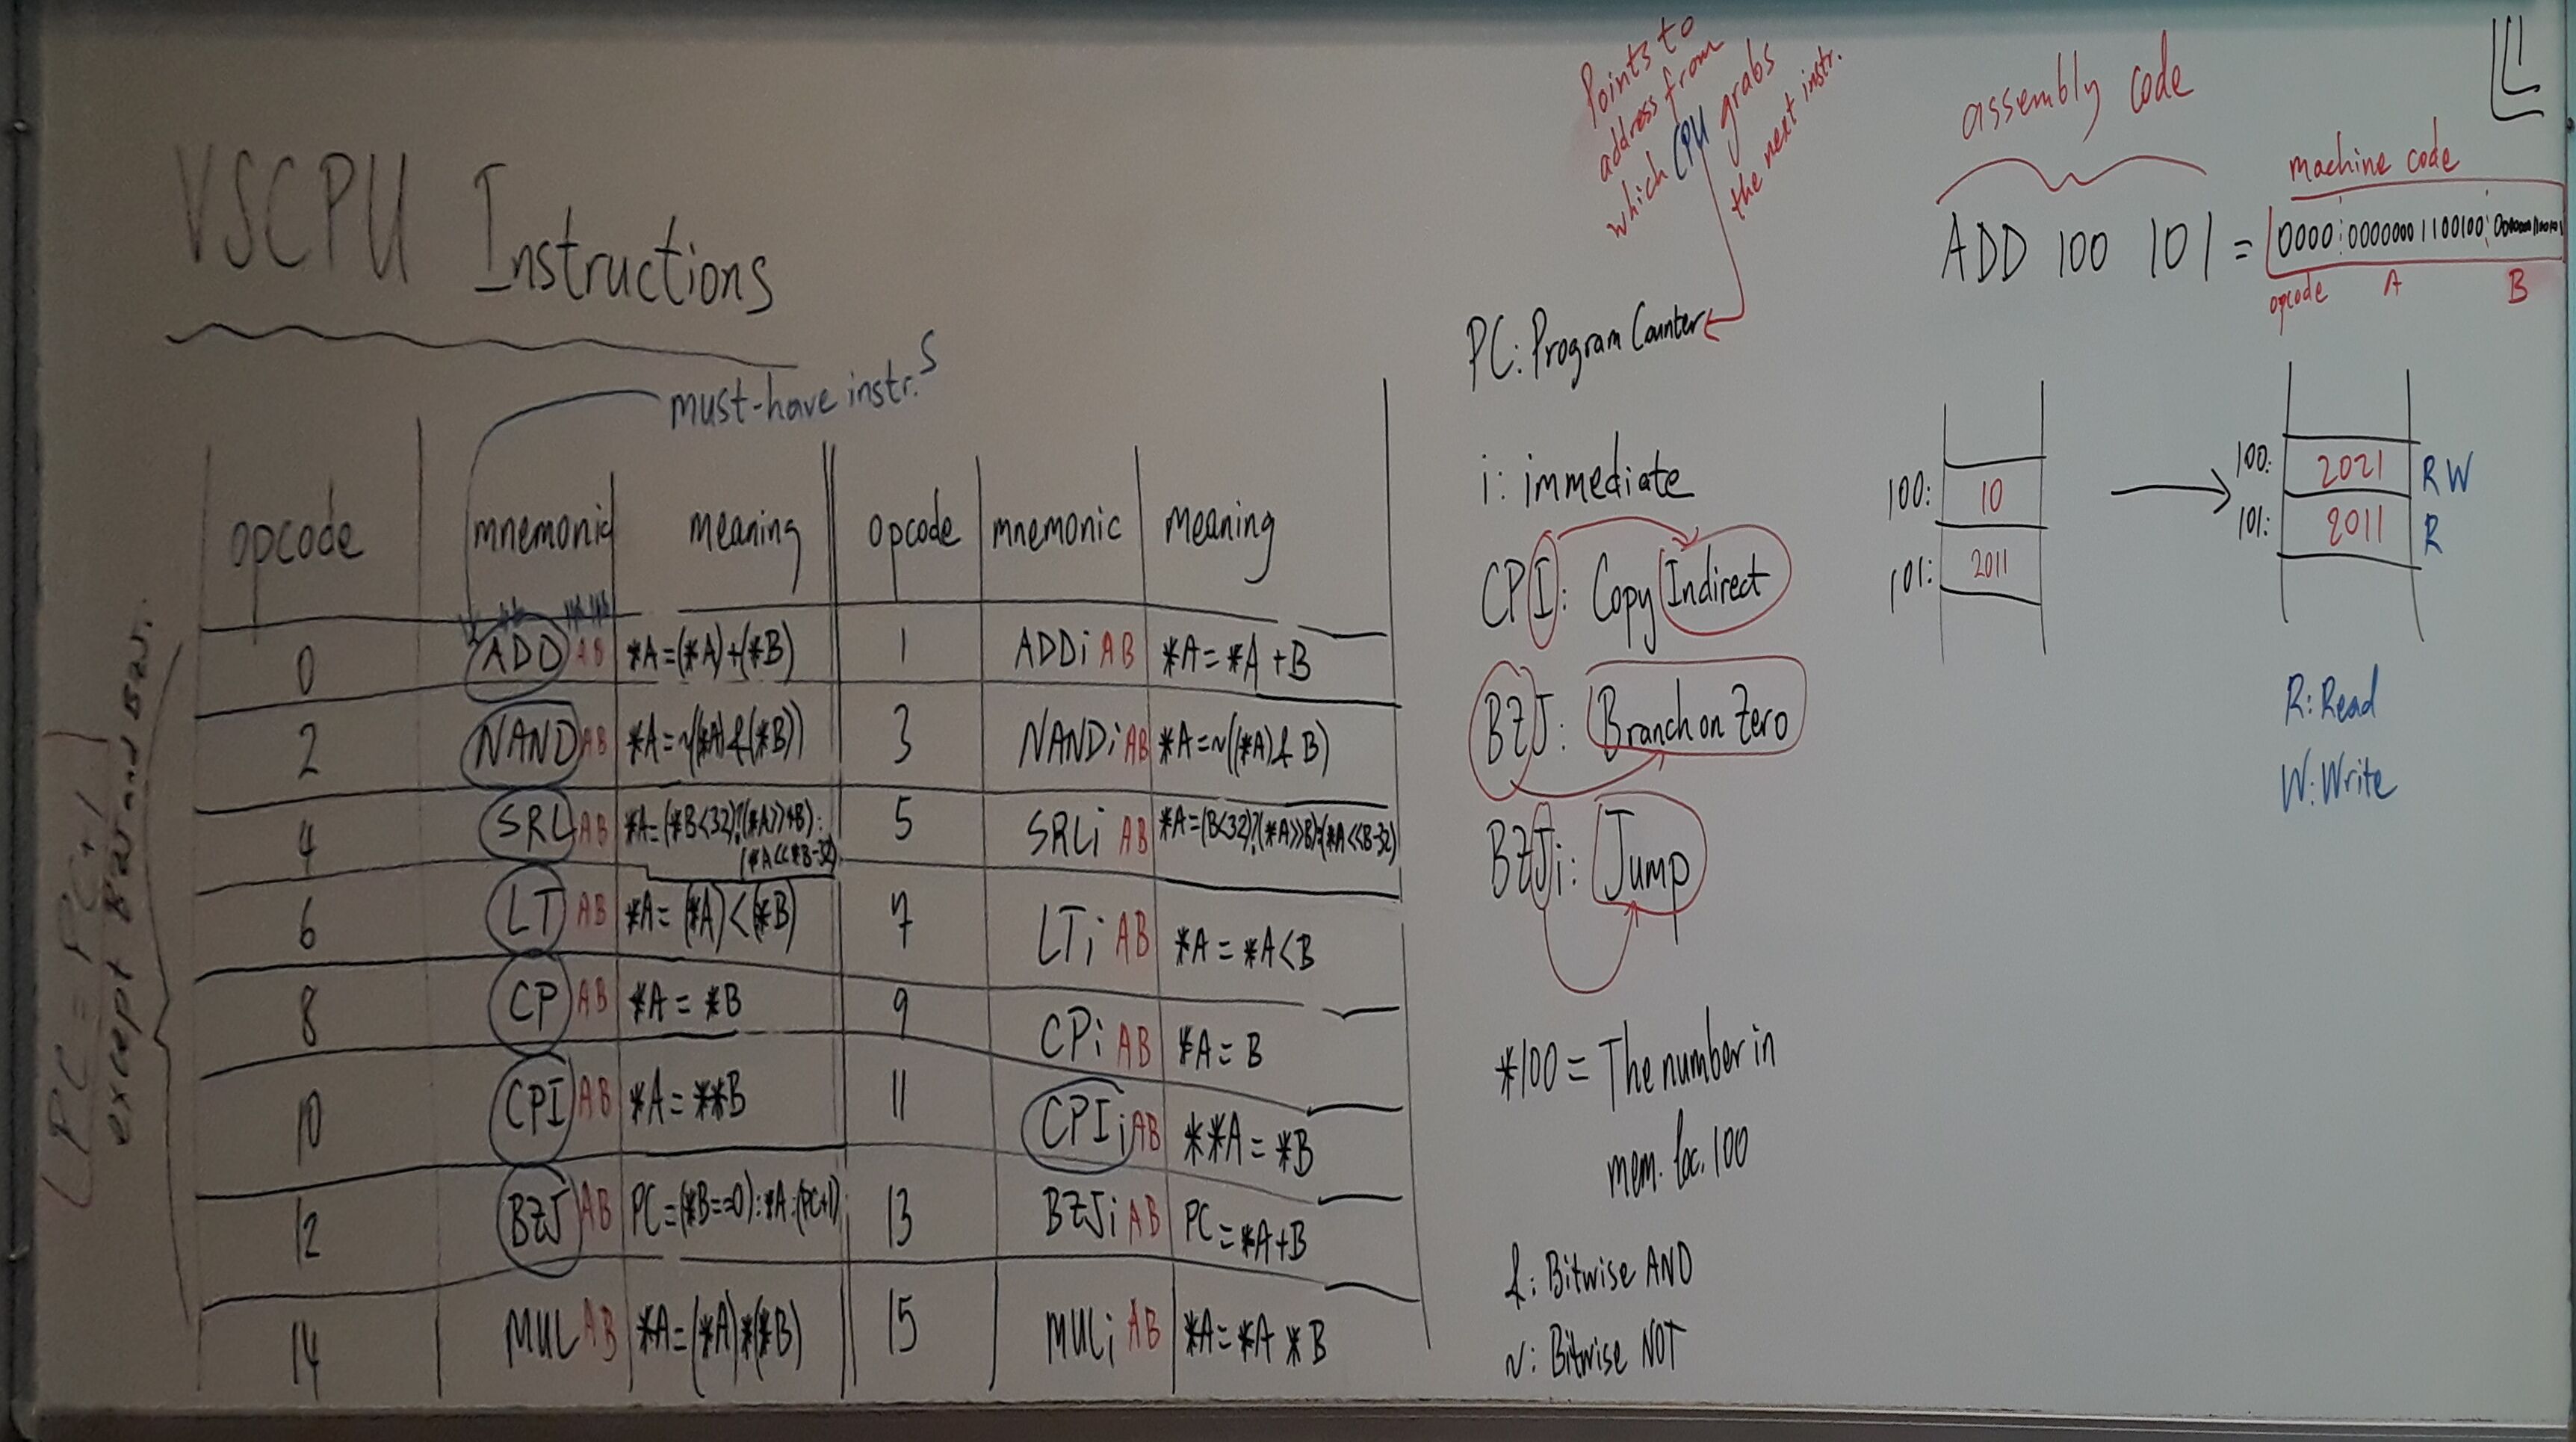 VSCPU Instructions
must-have instr.s
opcode mnemonic meaning opcode mnemonic meaning
0 ADD AB *A=(*A)+(*B) 1 ADDi AB *A=*A+B
2 NAND AB *A=~((*A)&(*B)) 3 NANDi AB *A=~((*A)& B)
4 SRL AB *A=(*B<32)?(*A>>*B):
(*A<<*B-32) 5 SRLi AB *A=(B<32)?(*A>>B):(*A<<B-32)
6 LT AB *A=(*A)<(*B) 7 LTi AB *A=*A<B
8 CP AB *A=*B 9 CPi AB *A=B
10 CPI AB *A=**B 11 CPIi AB **A=*B
12 BZJ AB PC=(*B==0):*A:(PC+1) 13 BZJi AB PC=*A+B
14 MUL AB *A=(*A)*(*B) 15 MULi AB *A=*A*B
PC=PC+1
except BZJ and BZJi.
Points to
address from
which CPU grabs
the next instr.
PC: Program Counter
i: immediate
CPI: Copy Indirect
BZJ: Branch on Zero
BZJi: Jump
*100 = The number in
mem. loc. 100
&: Bitwise AND
~: Bitwise NOT
assembly code
machine code
ADD 100 101 = 0000 00000001100100
opcode A B
100: 10
101: 2011
100: 2021 R W
101: 2011 R
R: Read
W: Write